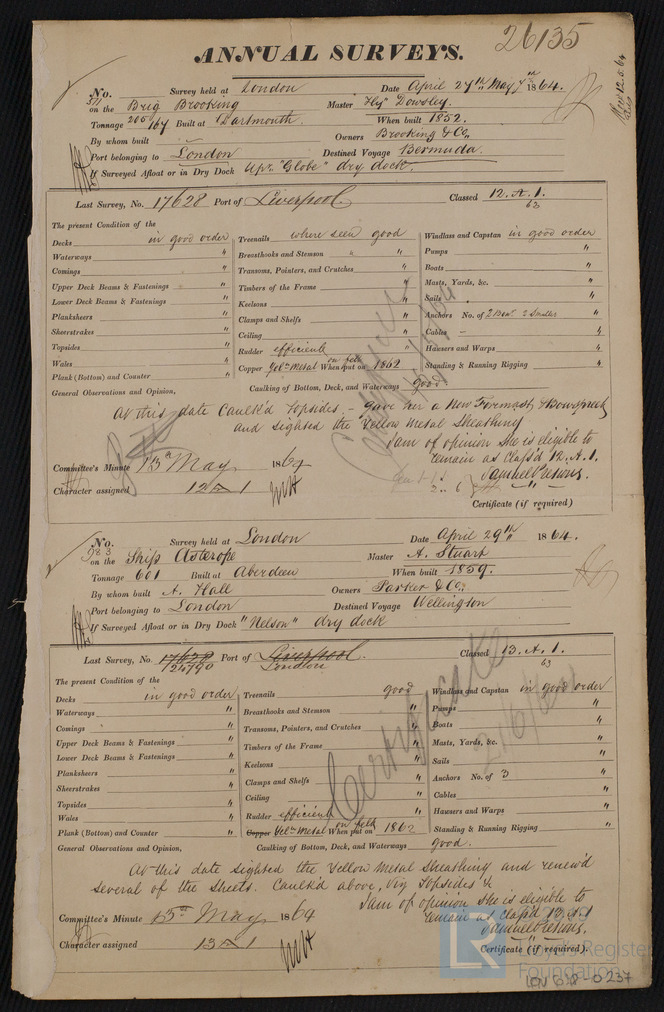 26135
ANNUAL SURVEYS.
No. Survey held at London Date April 27th May 7th 1864.
on the Brig Brooking Master Hy Dowsley
Tonnage 205/167 Built at Dartmouth When built 1852.
By whom built Owners Brooking & Co.
Port belonging to London Destined Voyage Bermuda.
If Surveyed Afloat or in Dry Dock Upr "Globe" dry dock.
Last Survey, No. 17628 Port of Liverpool. Classed 12. A. 1.
63
The present Condition of the
Decks in good order
Waterways "
Comings "
Upper Deck Beams & Fastenings "
Lower Deck Beams & Fastenings "
Planksheers "
Sheerstrakes "
Topsides "
Wales "
Plank (Bottom) and Counter "
Treenails where seen good
Breasthooks and Stemson "
Transoms, Pointers, and Crutches "
Timbers of the Frame "
Keelsons "
Clamps and Shelfs "
Ceiling "
Rudder efficient
Copper Yelw Metal on felt When put on 1862
Caulking of Bottom, Deck, and Waterways good
Windlass and Capstan in good order
Pumps "
Boats "
Masts, Yards, &c. "
Sails "
Anchors No. of 2 Best 2 Smaller
Cables "
Hawsers and Warps "
Standing & Running Rigging "
General Observations and Opinion,
At this date Caulk'd Topsides. - gave her a New Foremast, & Bowspreet
and sighted the Yellow Metal Sheathing
I am of opinion She is eligible to
remain as Class'd 12. A. 1.
Samuel Pesons.
Committee's Minute 13th May 1864
Character assigned 12 A 1
Certificate (if required)
No. Survey held at London Date April 29th 1864.
983
on the Ship Asterope Master A. Stuart
Tonnage 601 Built at Aberdeen When built 1859.
By whom built A. Hall Owners Parker & Co.
Port belonging to London Destined Voyage Wellington
If Surveyed Afloat or in Dry Dock "Nelson" dry dock
Last Survey, No. 17628 Port of Liverpool. Classed 13. A. 1.
London 63
The present Condition of the
Decks in good order
Waterways "
Comings "
Upper Deck Beams & Fastenings "
Lower Deck Beams & Fastenings "
Planksheers "
Sheerstrakes "
Topsides "
Wales "
Plank (Bottom) and Counter "
Treenails good
Breasthooks and Stemson "
Transoms, Pointers, and Crutches "
Timbers of the Frame "
Keelsons "
Clamps and Shelfs "
Ceiling "
Rudder efficient
Copper Yelw Metal on felt When put on 1862
Caulking of Bottom, Deck, and Waterways good.
Windlass and Capstan in good order
Pumps "
Boats "
Masts, Yards, &c. "
Sails "
Anchors No. of 3 "
Cables "
Hawsers and Warps "
Standing & Running Rigging "
Certificate
2/6/64
General Observations and Opinion,
At this date sighted the Yellow Metal Sheathing and renew'd
several of the Sheets. Caulk'd above, Viz Topsides &c
I am of opinion She is eligible to
remain as Class'd 13. A. 1
Samuel Pesons.
Committee's Minute 13th May 1864
Character assigned 13 A 1
Certificate (if required)
LR Lloyd's Register
Foundation
LON 638-0237